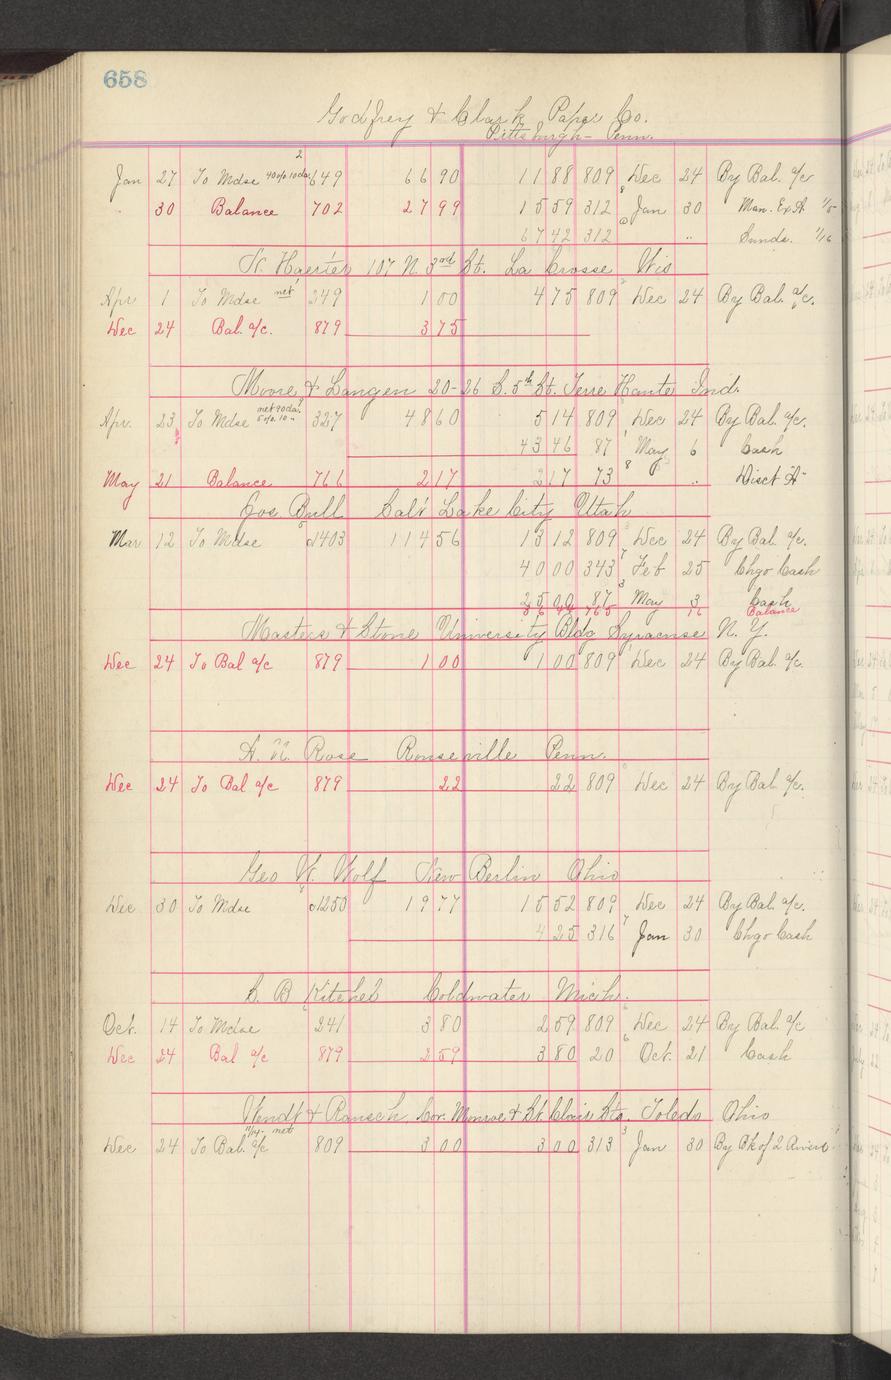 658
Godfrey & Clark Paper Co.
Pittsburgh - Penn.
Jan 27 To Mdse 649 66 90 11 88 809 Dec 24 By Bal. a/c
30 Balance 702 27 99 15 59 312 Jan 30 Man. Ex A
67 42 312 " Sunds. 1/16
107 N. 3rd St. La Crosse Wis
Apr 1 To Mdse net 249 1 00 4 75 809 Dec 24 By Bal a/c.
Dec 24 Bal. a/c. 879 3 75
Moore & Langen 20-26 S. 5th St. Terre Haute Ind.
Apr. 23 To Mdse net 90 da. 327 48 60 5 14 809 Dec 24 By Bal a/c.
43 46 87 May 6 Cash
May 21 Balance 766 2 17 2 17 73 " Disct A
Jos. Bull Salt Lake City Utah
Mar 12 To Mdse 1403 114 56 13 12 809 Dec 24 By Bal. a/c.
40 00 343 Feb 25 Chgo Cash
25 00 87 May 3 Cash
36 44 765 16 Balance
Masters & Stone University Bldg Syracuse N. Y.
Dec 24 To Bal a/c 879 1 00 1 00 809 Dec 24 By Bal a/c.
A. N. Rose Rouseville Penn.
Dec 24 To Bal a/c 879 22 22 809 Dec 24 By Bal a/c.
Geo W. Wolf New Berlin Ohio
Dec 30 To Mdse 1250 19 77 15 52 809 Dec 24 By Bal. a/c.
4 25 316 Jan 30 Chgo Cash
C. B Kitchel Coldwater Mich.
Oct. 14 To Mdse 241 3 80 2 59 809 Dec 24 By Bal. a/c
Dec 24 Bal a/c 879 2 59 3 80 20 Oct. 21 Cash
Wendt & Rausch Cor. Monroe & St Clair Sts. Toledo Ohio
net
Dec 24 To Bal. a/c 809 3 00 3 00 313 Jan 30 By Bk of 2